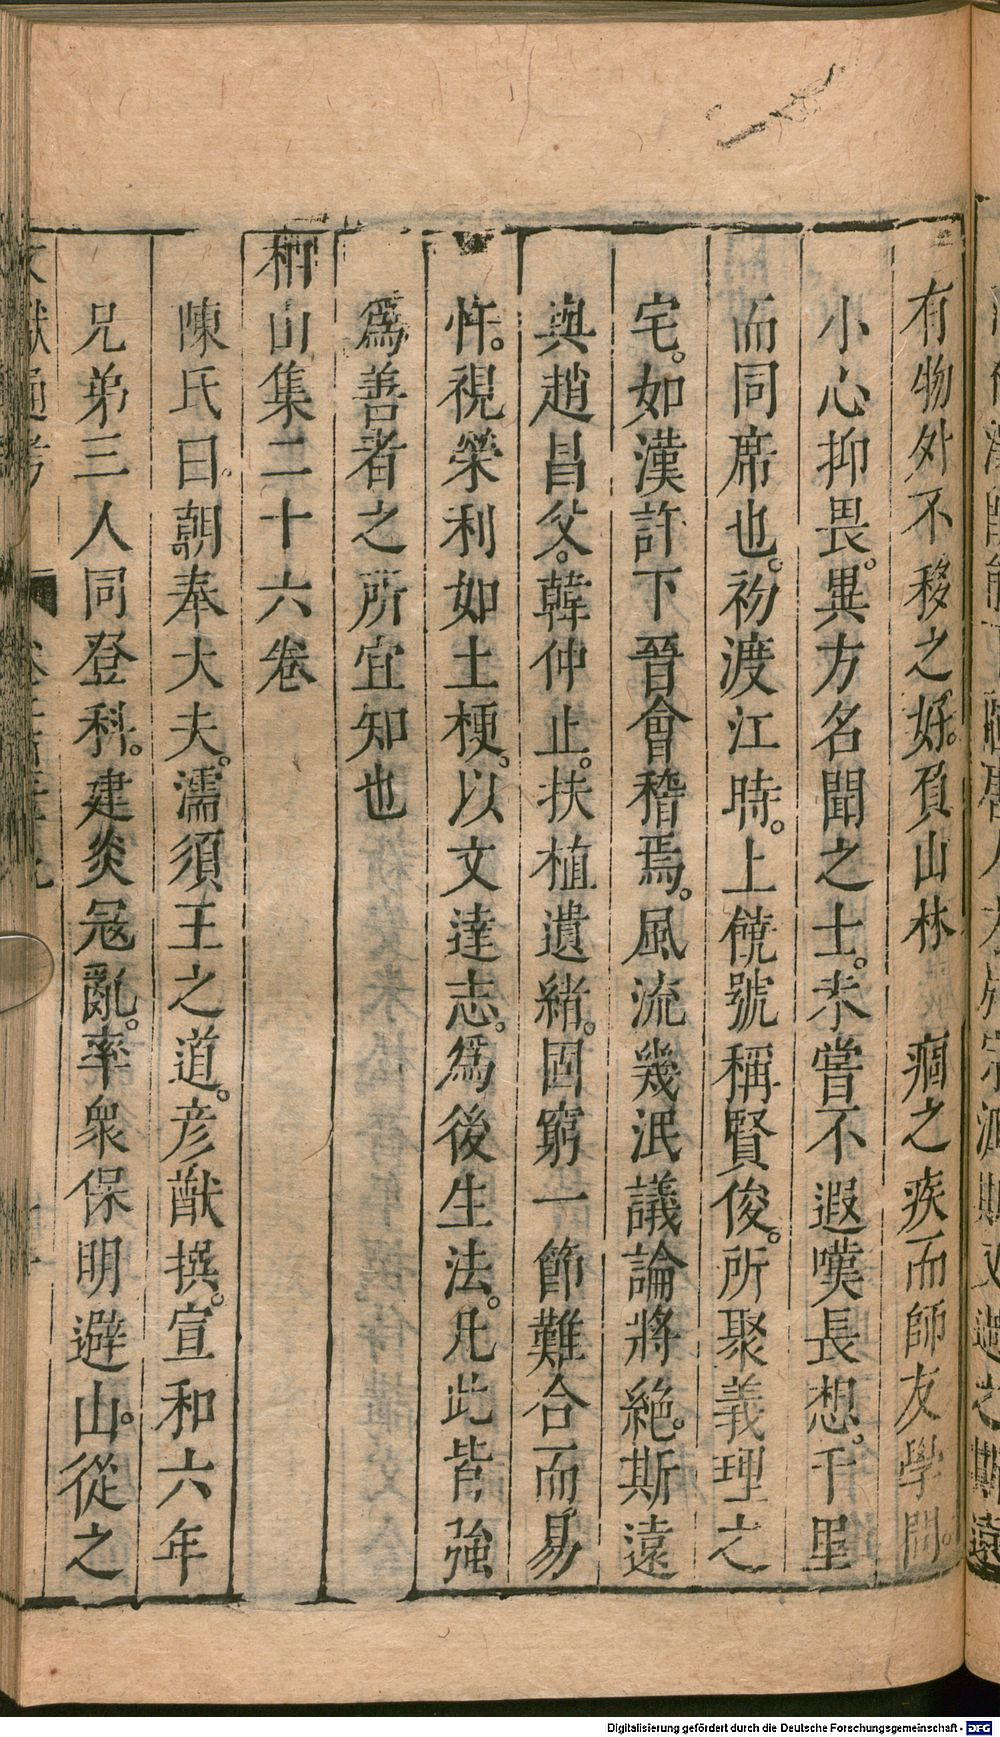 有物外不移之好。負山林 痼之疾而師友學問。
小心抑畏。異方名聞之士。未嘗不遐嘆長想。千里
而同席也。初渡江時。上饒號稱賢俊。所聚義理之
宅。如漢許下晉會稽焉。風流幾泯議論將絶。斯遠
與趙昌父。韓仲止。扶植遺緒。固窮一節難合而易
忤。視榮利如土梗。以文達志。爲後生法。凡此皆強
爲善者之所宜知也
相山集二十六卷
陳氏曰。朝奉大夫。濡須王之道。彦猷撰。宣和六年
兄弟三人同登科。建炎冦亂。率衆保明避山。從之
文獻通考
Digitalisierung gefördert durch die Deutsche Forschungsgemeinschaft - DFG